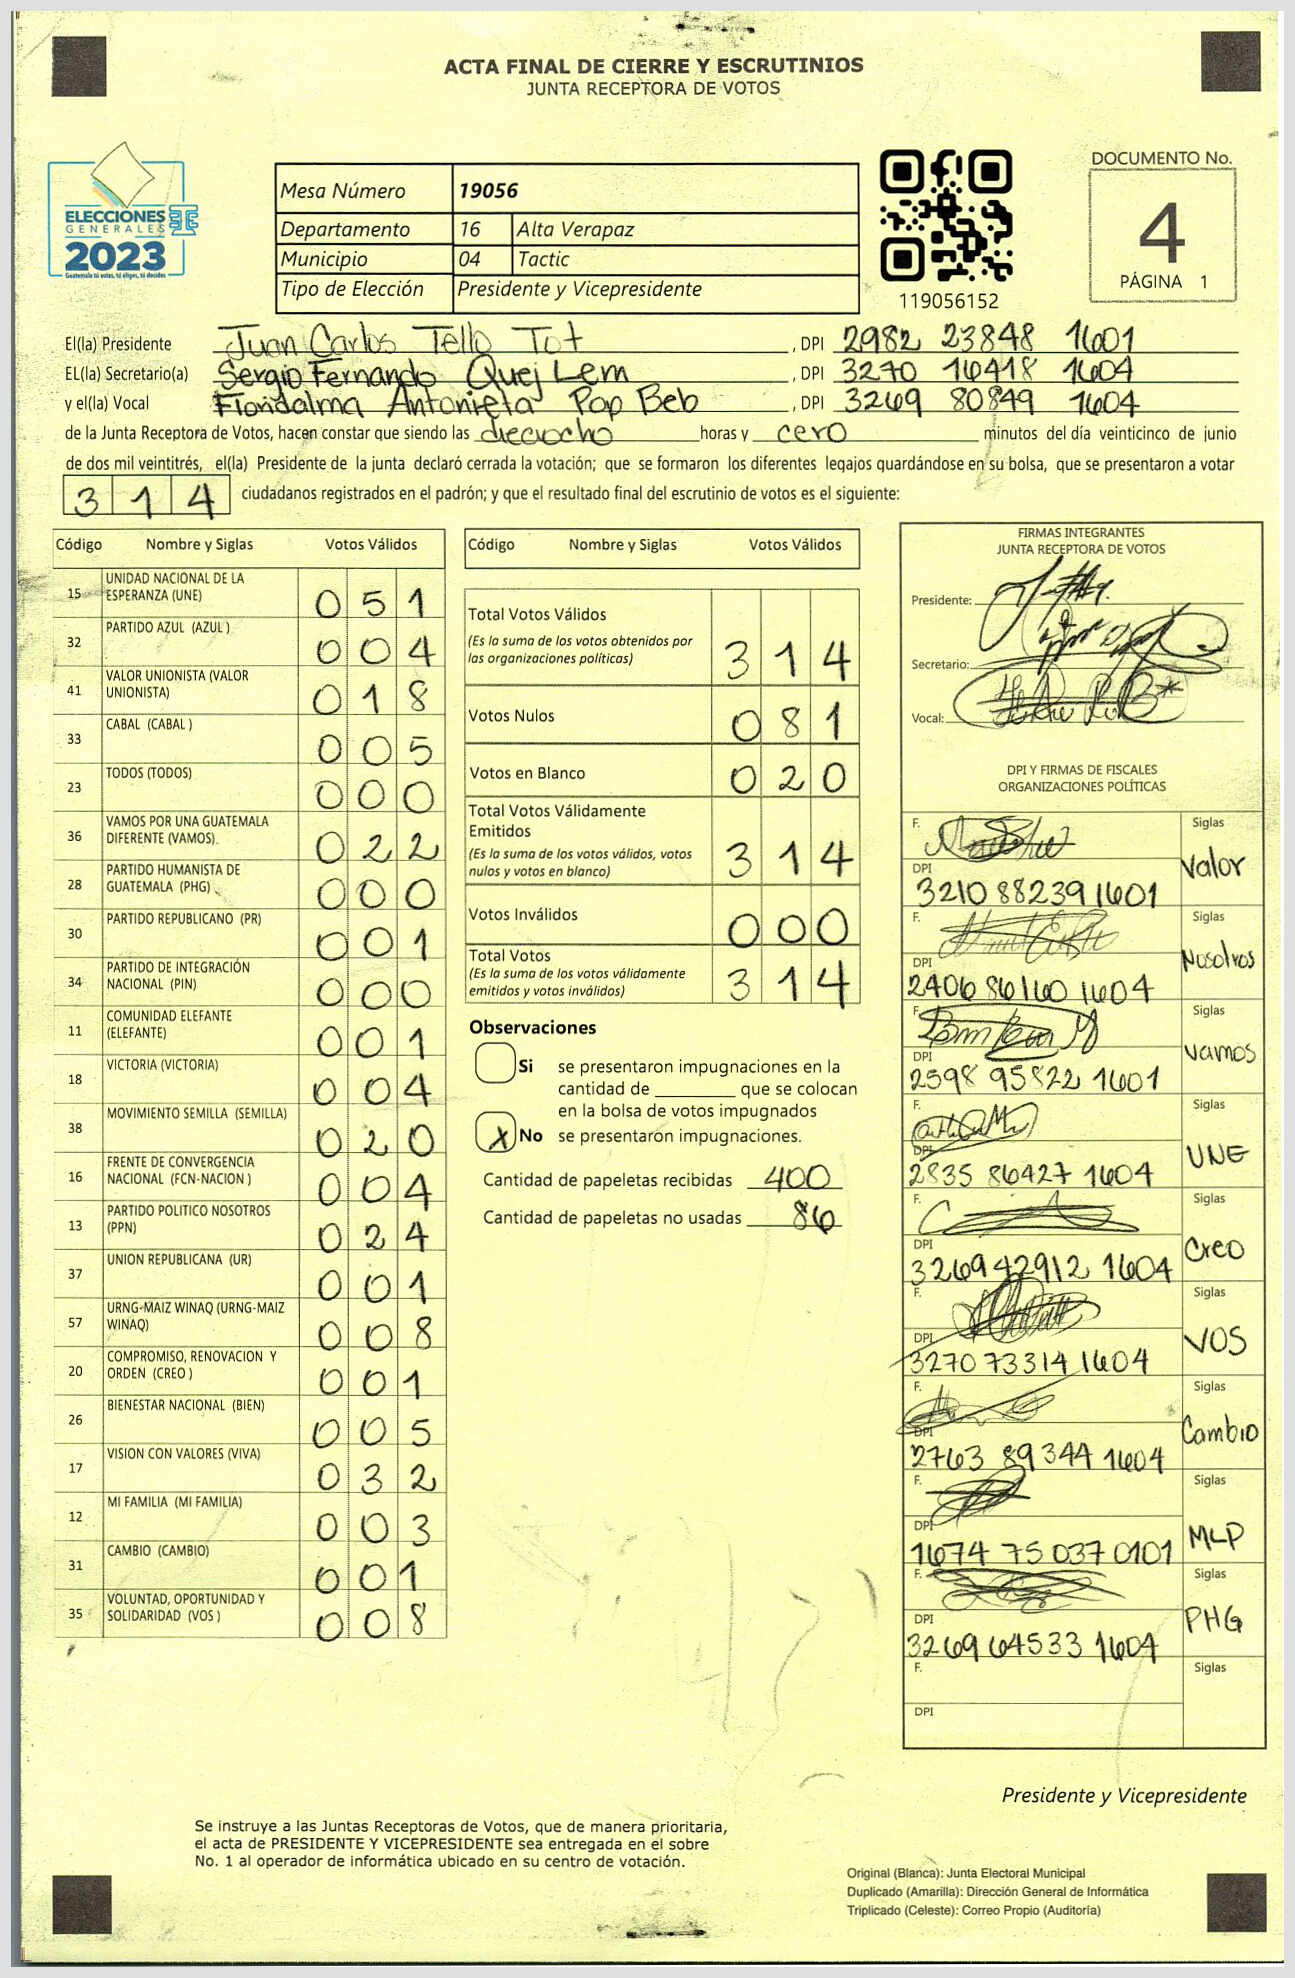 ACTA FINAL DE CIERRE Y ESCRUTINIOS
JUNTA RECEPTORA DE VOTOS
ELECCIONES
GENERALES
2023
Guatemala tú votas, tú eliges, tú decides
Mesa Número 19056
Departamento 16 Alta Verapaz
Municipio 04 Tactic
Tipo de Elección Presidente y Vicepresidente
119056152
DOCUMENTO No.
4
PÁGINA 1
El(la) Presidente Juan Carlos Tello Tot, DPI 2982 23848 1601
EL(la) Secretario(a) Sergio Fernando Quej Lem, DPI 3270 16418 1604
y el(la) Vocal Floridalma Antonieta Pop Beb, DPI 3269 80849 1604
de la Junta Receptora de Votos, hacen constar que siendo las dieciocho horas y cero minutos del día veinticinco de junio
de dos mil veintitrés, el(la) Presidente de la junta declaró cerrada la votación; que se formaron los diferentes legajos guardándose en su bolsa, que se presentaron a votar
314 ciudadanos registrados en el padrón; y que el resultado final del escrutinio de votos es el siguiente:
Código Nombre y Siglas Votos Válidos
15 UNIDAD NACIONAL DE LA ESPERANZA (UNE) 051
32 PARTIDO AZUL (AZUL ) 004
41 VALOR UNIONISTA (VALOR UNIONISTA) 018
33 CABAL (CABAL ) 005
23 TODOS (TODOS) 000
36 VAMOS POR UNA GUATEMALA DIFERENTE (VAMOS) 022
28 PARTIDO HUMANISTA DE GUATEMALA (PHG) 000
30 PARTIDO REPUBLICANO (PR) 001
34 PARTIDO DE INTEGRACIÓN NACIONAL (PIN) 000
11 COMUNIDAD ELEFANTE (ELEFANTE) 001
18 VICTORIA (VICTORIA) 004
38 MOVIMIENTO SEMILLA (SEMILLA) 020
16 FRENTE DE CONVERGENCIA NACIONAL (FCN-NACION ) 004
13 PARTIDO POLITICO NOSOTROS (PPN) 024
37 UNION REPUBLICANA (UR) 001
57 URNG-MAIZ WINAQ (URNG-MAIZ WINAQ) 008
20 COMPROMISO, RENOVACION Y ORDEN (CREO ) 001
26 BIENESTAR NACIONAL (BIEN) 005
17 VISION CON VALORES (VIVA) 032
12 MI FAMILIA (MI FAMILIA) 003
31 CAMBIO (CAMBIO) 001
35 VOLUNTAD, OPORTUNIDAD Y SOLIDARIDAD (VOS ) 008
Código Nombre y Siglas Votos Válidos
Total Votos Válidos
(Es la suma de los votos obtenidos por
las organizaciones políticas) 314
Votos Nulos 081
Votos en Blanco 020
Total Votos Válidamente
Emitidos
(Es la suma de los votos válidos, votos
nulos y votos en blanco) 314
Votos Inválidos 000
Total Votos
(Es la suma de los votos válidamente
emitidos y votos inválidos) 314
Observaciones
Si se presentaron impugnaciones en la
cantidad de ________ que se colocan
en la bolsa de votos impugnados
X No se presentaron impugnaciones.
Cantidad de papeletas recibidas 400
Cantidad de papeletas no usadas 86
FIRMAS INTEGRANTES
JUNTA RECEPTORA DE VOTOS
Presidente:
Secretario:
Vocal:
DPI Y FIRMAS DE FISCALES
ORGANIZACIONES POLÍTICAS
F. Siglas Valor
DPI 3210 88239 1601
F. Siglas Nosotros
DPI 2406 86160 1604
F. Siglas Vamos
DPI 2598 95822 1601
F. Siglas UNE
DPI 2835 86427 1604
F. Siglas Creo
DPI 3269 42912 1604
F. Siglas VOS
DPI 3270 73314 1604
F. Siglas Cambio
DPI 2763 89344 1604
F. Siglas MLP
DPI 1674 75037 0101
F. Siglas PHG
DPI 3269 64533 1604
F. Siglas
DPI
Presidente y Vicepresidente
Se instruye a las Juntas Receptoras de Votos, que de manera prioritaria,
el acta de PRESIDENTE Y VICEPRESIDENTE sea entregada en el sobre
No. 1 al operador de informática ubicado en su centro de votación.
Original (Blanca): Junta Electoral Municipal
Duplicado (Amarilla): Dirección General de Informática
Triplicado (Celeste): Correo Propio (Auditoría)